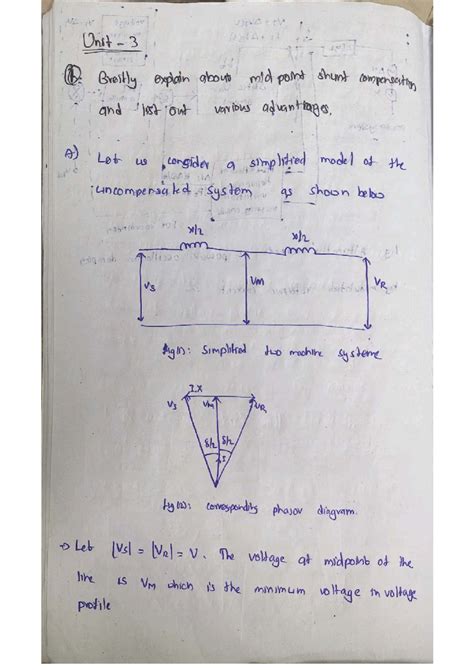 Unit - 3
Breifly explain about mid point shunt compensation
and list out various advantages.
A) Let us consider a simplified model of the
uncompensated system as shown below
X/2 X/2
Vs VM VR
fig(1): simplified two machine systeme
I.X
Vs VM VR
δ/2 δ/2
I
fig(2): corresponding phasor diagram.
-> Let |Vs| = |VR| = V. The voltage at midpoint of the
line is VM which is the minimum voltage in voltage
profile